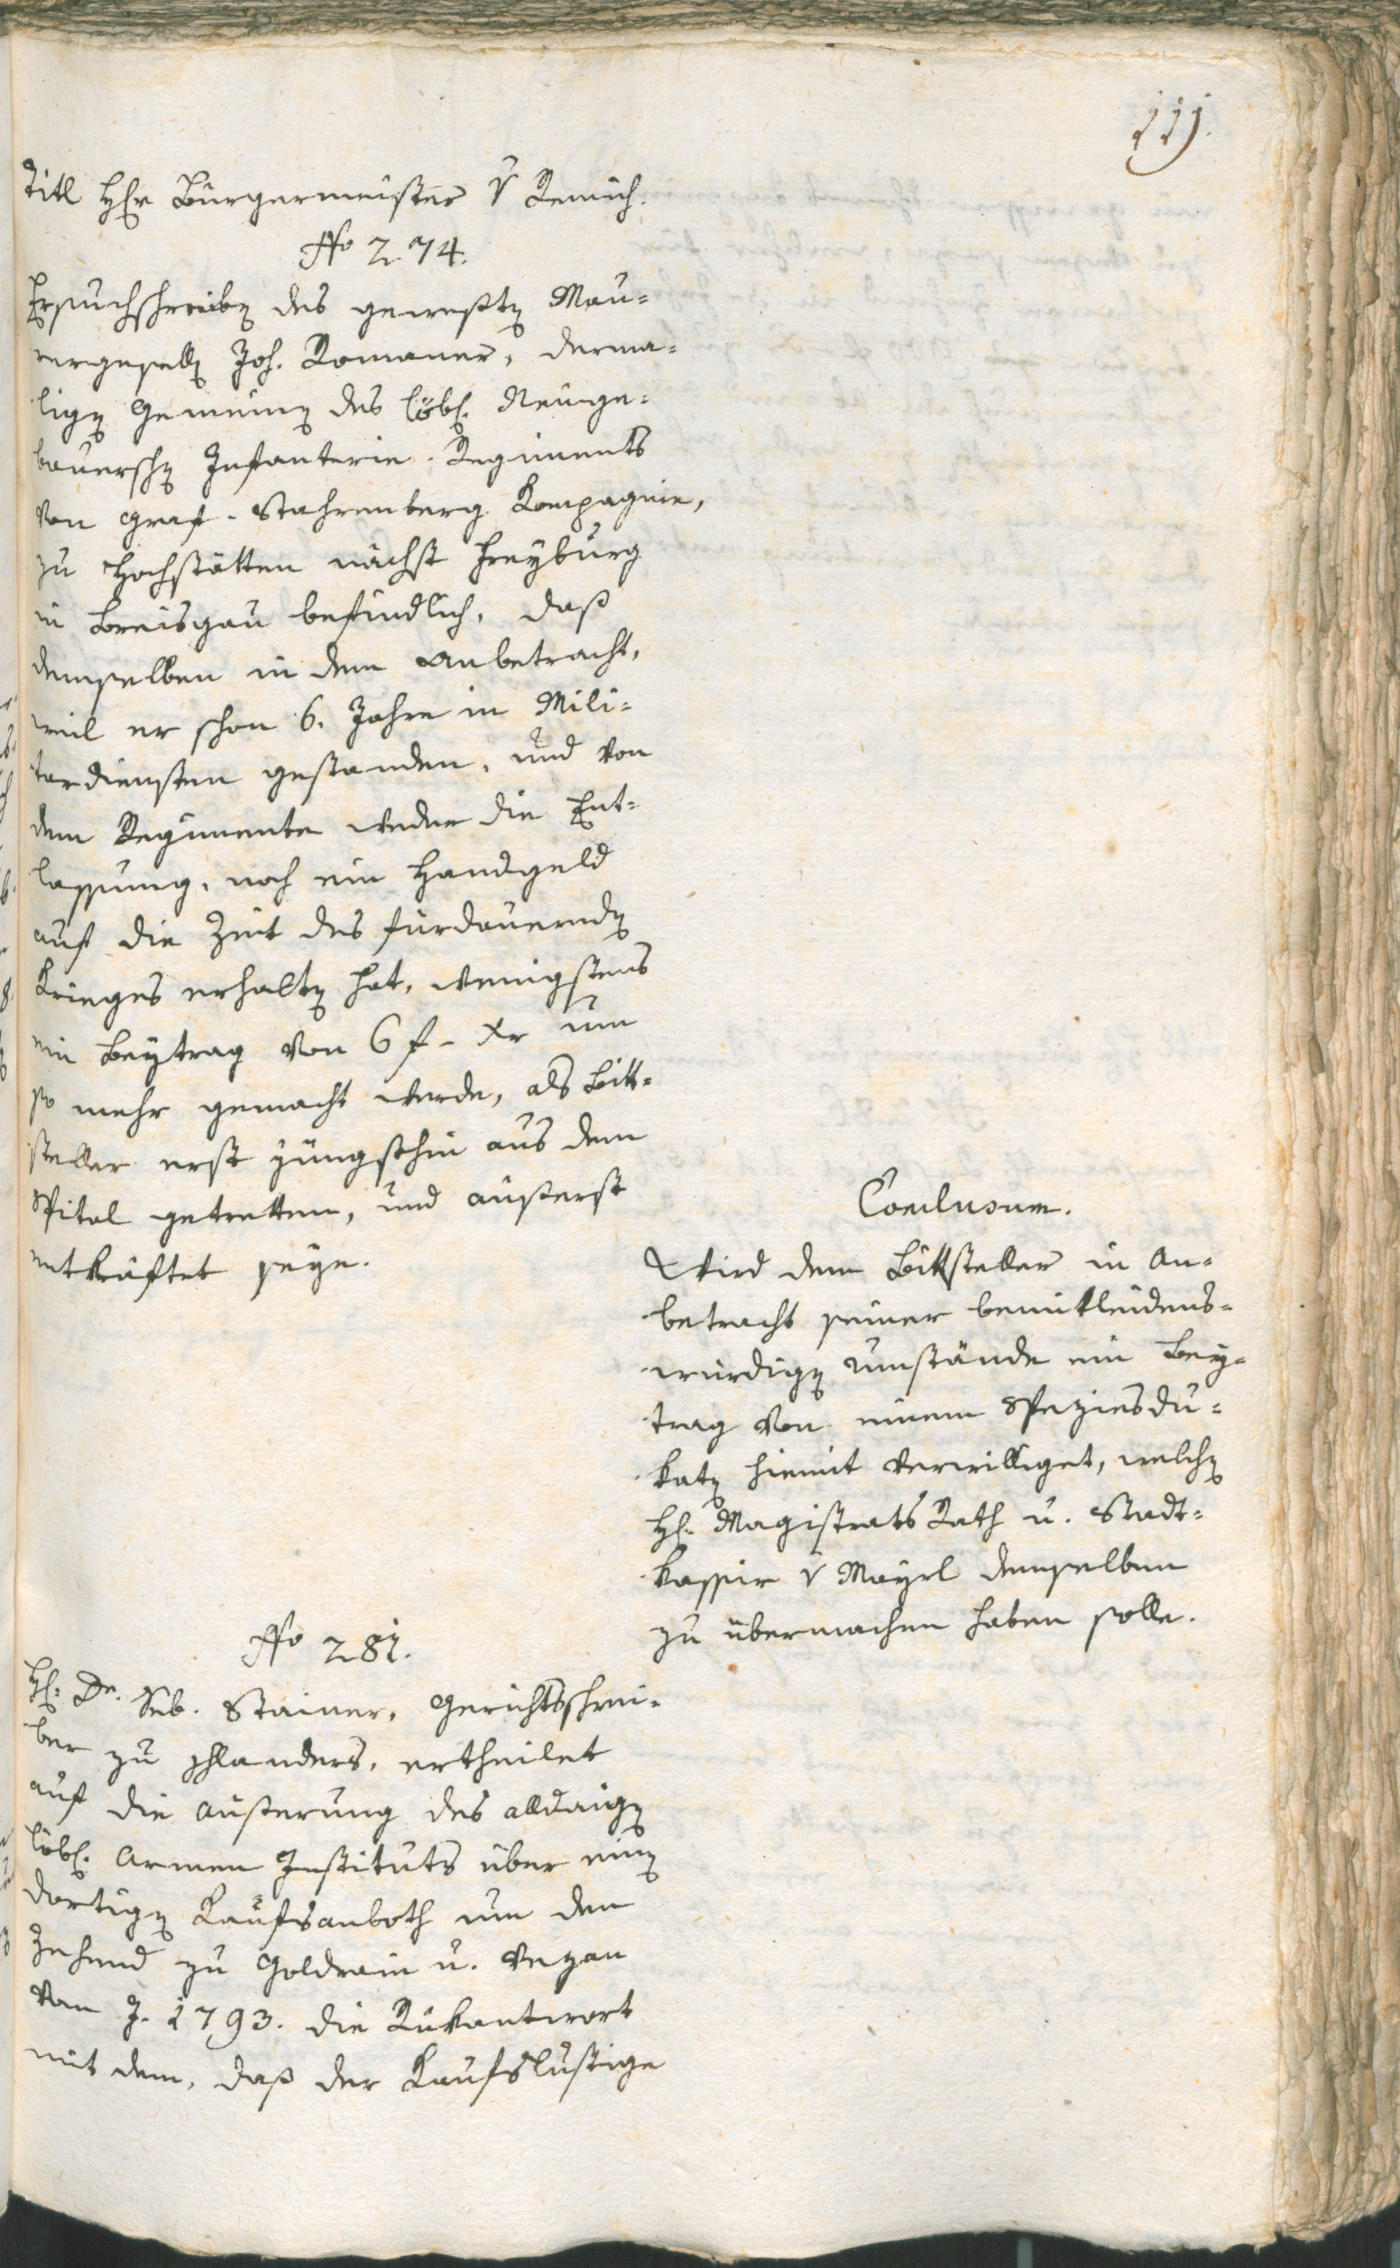 111.
Titl Hr Bürgermeister v Remich.
No 274.
Ersuchschreiben des gewesten Mau-
rergesell Joh. Romaner, derma-
ligen Gemeinen des löbl. Neuge-
bauerschen Infanterie-Regiments
von Graf-Stahremberg Kompagnie,
zu Hochstätten nächst Freyburg
in Breisgau befindlich, daß
demselben in dem Anbetracht,
weil er schon 6. Jahre in Mili-
tardiensten gestanden, und von
dem Regimente weder die Ent-
lassung, noch ein Handgeld
auf die Zeit des fürdauernden
Krieges erhalten hat, wenigstens
ein Beytrag von 6 f - Xr um
so mehr gemacht werde, als Bitt-
steller erst jüngsthin aus dem
Spital getretten, und äußerst
entkräftet seye.
Conclusum.
Wird dem Bittsteller in An-
betracht seiner bemitleidens-
würdigen Umstände ein Bey-
trag von einem Speziesdu-
katen hiemit verwilliget, welchen
H. Magistrats Rath u. Stadt-
kassir v Mayrl demselben
zu übermachen haben solle.
No 281.
H. Dr. Seb. Stainer, Gerichtsschrei-
ber zu Schlanders, ertheilet
auf die Äußerung des alldaigen
löbl. Armen Instituts über einen
dortigen Kaufsanboth um den
Zehend zu Goldrain u. Vezan
vom J. 1793. die Rükantwort
mit dem, daß der Kaufslustige